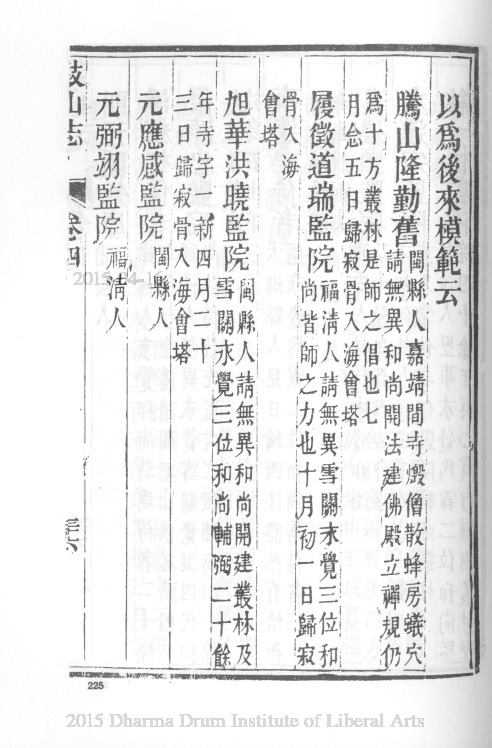 以爲後來模範云
騰山隆勤舊 閩縣人嘉靖間寺燬僧散蜂房蟻穴
請無異和尚開法建佛殿立禪規仍
爲十方叢林是師之倡也七
月念五日歸寂骨入海會塔
履徵道瑞監院 福清人請無異雪關永覺三位和
尚皆師之力也十月初一日歸寂
骨入海
會塔
旭華洪曉監院 閩縣人請無異和尚開建叢林及
雪關永覺三位和尚輔弼二十餘
年寺字一新四月二十
三日歸寂骨入海會塔
元應感監院 閩縣人
元弼翊監院 福清人
鼓山志 卷四 三六
225
2015 Dharma Drum Institute of Liberal Arts